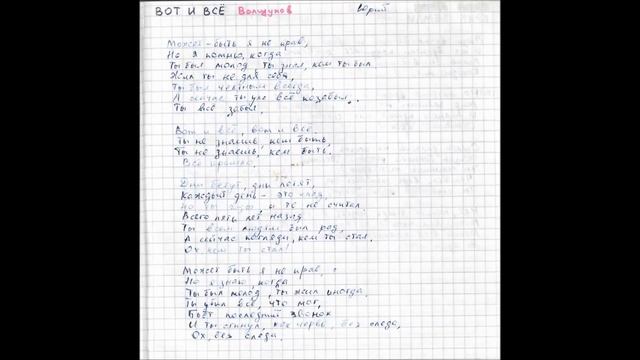 ВОТ И ВСЁ Волшуков Юрий
Может-быть я не прав,
Но я помню, когда
Ты был молод, ты знал, кем ты был.
Жил ты не для себя,
Ты был честным всегда,
А сейчас ты уже всё позабыл.
Ты всё забыл.
Вот и всё, вот и всё.
Ты не знаешь, кем быть,
Ты не знаешь, кем быть.
Всё прошло.
Дни бегут, дни летят,
Каждый день - это
Но ты и не считал.
Всего пять лет назад
Ты всем людям был рад,
А сейчас погляди, кем ты стал.
Ох кем ты стал!
Может быть я не прав,
Но я знаю, когда
Ты был молод, ты жил иногда.
Ты убил всё, что мог,
Бьёт последний звонок
И ты сгинул, как червь, без следа,
Ох, без следа.